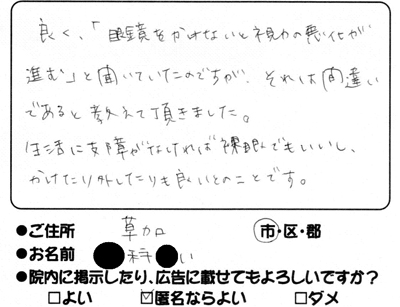 良く、「眼鏡をかけないと視力の悪化が
進む」と聞いていたのですが、それは間違い
であると教えて頂きました。
生活に支障がなければ裸眼でもいいし、
かけたり外したりも良いとのことです。
●ご住所 草加 市・区・郡
●お名前 ●科●い
●院内に掲示したり、広告に載せてもよろしいですか？
□よい ☑匿名ならよい □ダメ